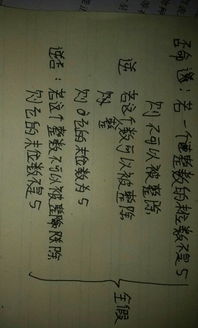 否命题：若一个整数的末位数不是5
则不可以被整除
逆否命题 若这个数可以被整除
则它的末位数为5
逆否：若这个整数不可以被整除
则它的末位数不是5
全假